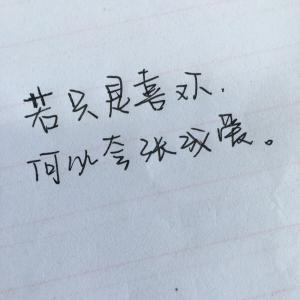 若只是喜欢，
何以夸张成爱。